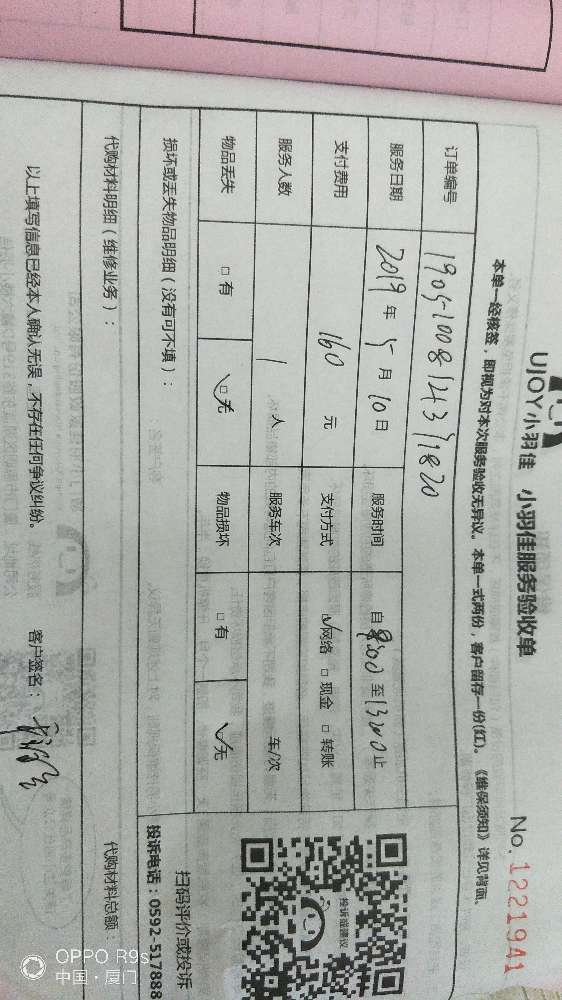 UJOY小羽佳 小羽佳服务验收单
No. 1221941
本单一经核签，即视为对本次服务验收无异议。本单一式两份，客户留存一份(红)。《维保须知》详见背面。
订单编号 1905100814371820
服务日期 2019年5月10日 服务时间 自9:00至13:00止
支付费用 160元 支付方式 ☑网络 □现金 □转账
服务人数 1人 服务车次 车/次
物品丢失 □有 ☑无 物品损坏 □有 ☑无
损坏或丢失物品明细（没有可不填）：
投诉或建议
扫码评价或投诉
投诉电话：0592-517888
代购材料明细（维修业务）： 代购材料总额：
以上填写信息已经本人确认无误，不存在任何争议纠纷。 客户签名：
OPPO R9s
中国·厦门